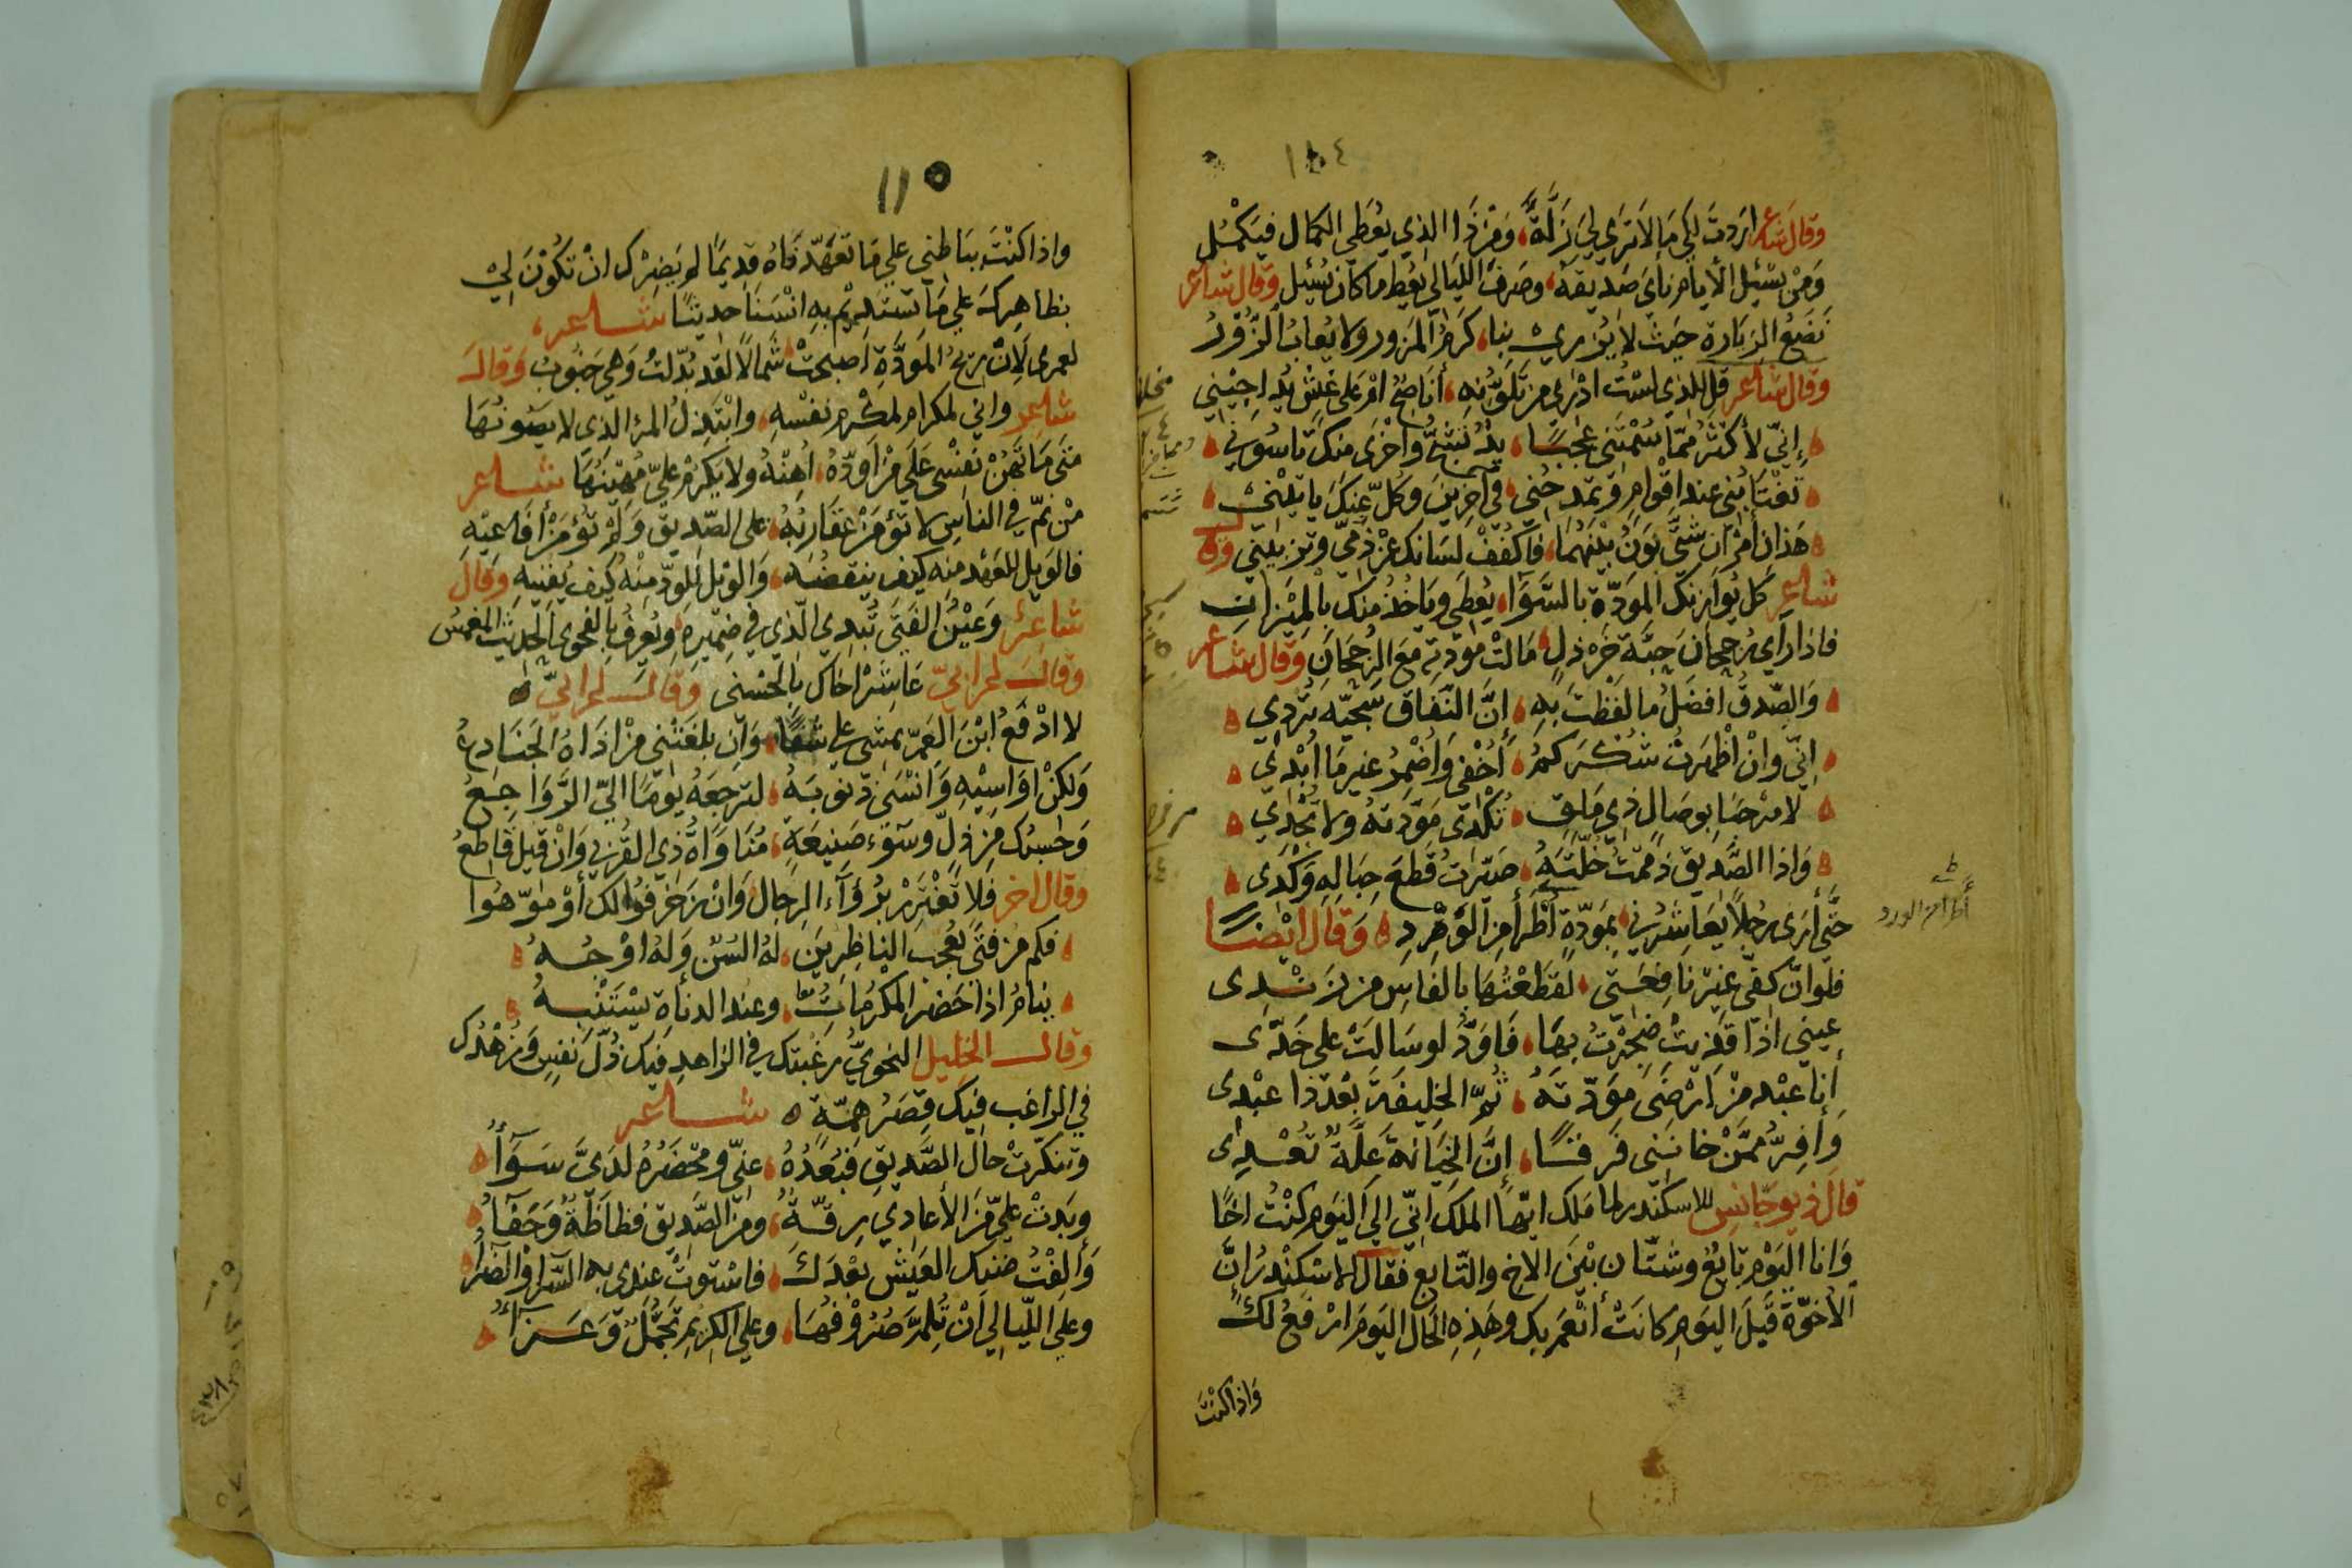 ١١٤
وقال شاعر اردت لكي ما لا ترى لي زلة ومن ذا الذي يعطي الكمال فيكمل
ومن يسئل الايام نأي صديقه وصرف الليالي يعط ما كان يسئل وقال شاعر
نضع الزيارة حيث لا يزري بنا كرم المزور ولا يعاب الزور
وقال شاعر قل للذي لست ادري من تلونه أناصح ام على غش يداجيني
إني لأكثر مما سمتني عجبا يد تشج واخرى منك تاسوني
تغتابني عند اقوام وتمدحني في آخرين وكل عنك ياتيني
هذان أمران شتى بون بينهما فاكفف لسانك عن ذمي وتزييني وقال
شاعر كل يوازنك المودة بالسوا يعطي وياخذ منك بالميزان
فاذا رأى رجحان حبة خردل مالت مودته مع الرجحان وقال شاعر
والصدق افضل ما لفظت به إن النفاق سجية تردي
إني وان اظهرت شكركم أخفي وأضمر غير ما أبدي
لا مرحبا بوصال ذي ملق تكدى مودته ولا تجدي
واذا الصديق ذممت خلته صيرت قطع حباله وكدى
حتى أرى رجلا يعاشرني بمودة أطرأ من الورد وقال ايضا
فلو ان كفي غير نافعتي لقطعتها بالفاس من زندى
عيني اذا قذيت ضجرت بها فاود لو سالت على خدى
أنا عبد من ارضى مودته ثم الخليفة بعد ذا عبدى
وأفر ممن خانني فرقا إن الخيانة علة تعدى
قال ذيوجانس للاسكندر لما ملك ايها الملك اني الى اليوم كنت اخا
وانا اليوم تابع وشتان بين الاخ والتابع فقال الاسكندر إن
الأخوة قبل اليوم كانت أنعم بك وهذه الحال اليوم ارفع لك
واذا كنت
أطرأ من الورد
١١٥
واذا كنت بباطني على ما تعهدناه قديما لم يضرك ان تكون لي
بظاهرك على ما تستديم به انسنا حديثا شاعر
لعمرى لان ريح المودة اصبحت شمالا لقد بدلت وهي جنوب وقال
شاعر واني لمكرام لمكرم نفسه وابتذل المرء الذى لا يصونها
متى ما تهن نفسى على من اوده اهنه ولا يكرم علي مهينها شاعر
من نم في الناس لا تؤمن عقاربه على الصديق ولم تؤمن أفاعيه
فالويل للعهد منه كيف ينقضه والويل للود منه كيف يفنيه وقال
شاعر وعين الفتى تبدي الذي في ضميره ويعرف بالفحوى الحديث المغمس
وقال اعرابي عاشر اخاك بالحسنى وقال اعرابي
لا ادفع ابن العم يمشي على شفا وان بلغتني من اذاه الجنادع
ولكن اواسيه وانسى ذنوبه لترجعه يوما الي الرواجع
وحسبك من ذل وسوء صنيعة مناواة ذي القربى وان قيل قاطع
وقال اخر فلا تغترر برؤاء الرجال وان زخرفوا لك أو موهوا
فكم من فتى يعجب الناظرين له السن وله اوجه
ينام اذا حضر المكرمات وعند الدناة يستنبه
وقال الخليل النحوي رغبتك في الزاهد فيك ذل نفس وزهدك
في الراغب فيك قصر همة شاعر
وتنكرت حال الصديق فبعده عني ومحضره لدي سوآء
وبدت علي من الأعادي رقة ومن الصديق فظاظة وجفآء
وألفت ضنك العيش بعدك فاستوت عندي به السرآ والضرآ
وعلى الليالي ان تلم صروفها وعلى الكريم تجمل وعزآء